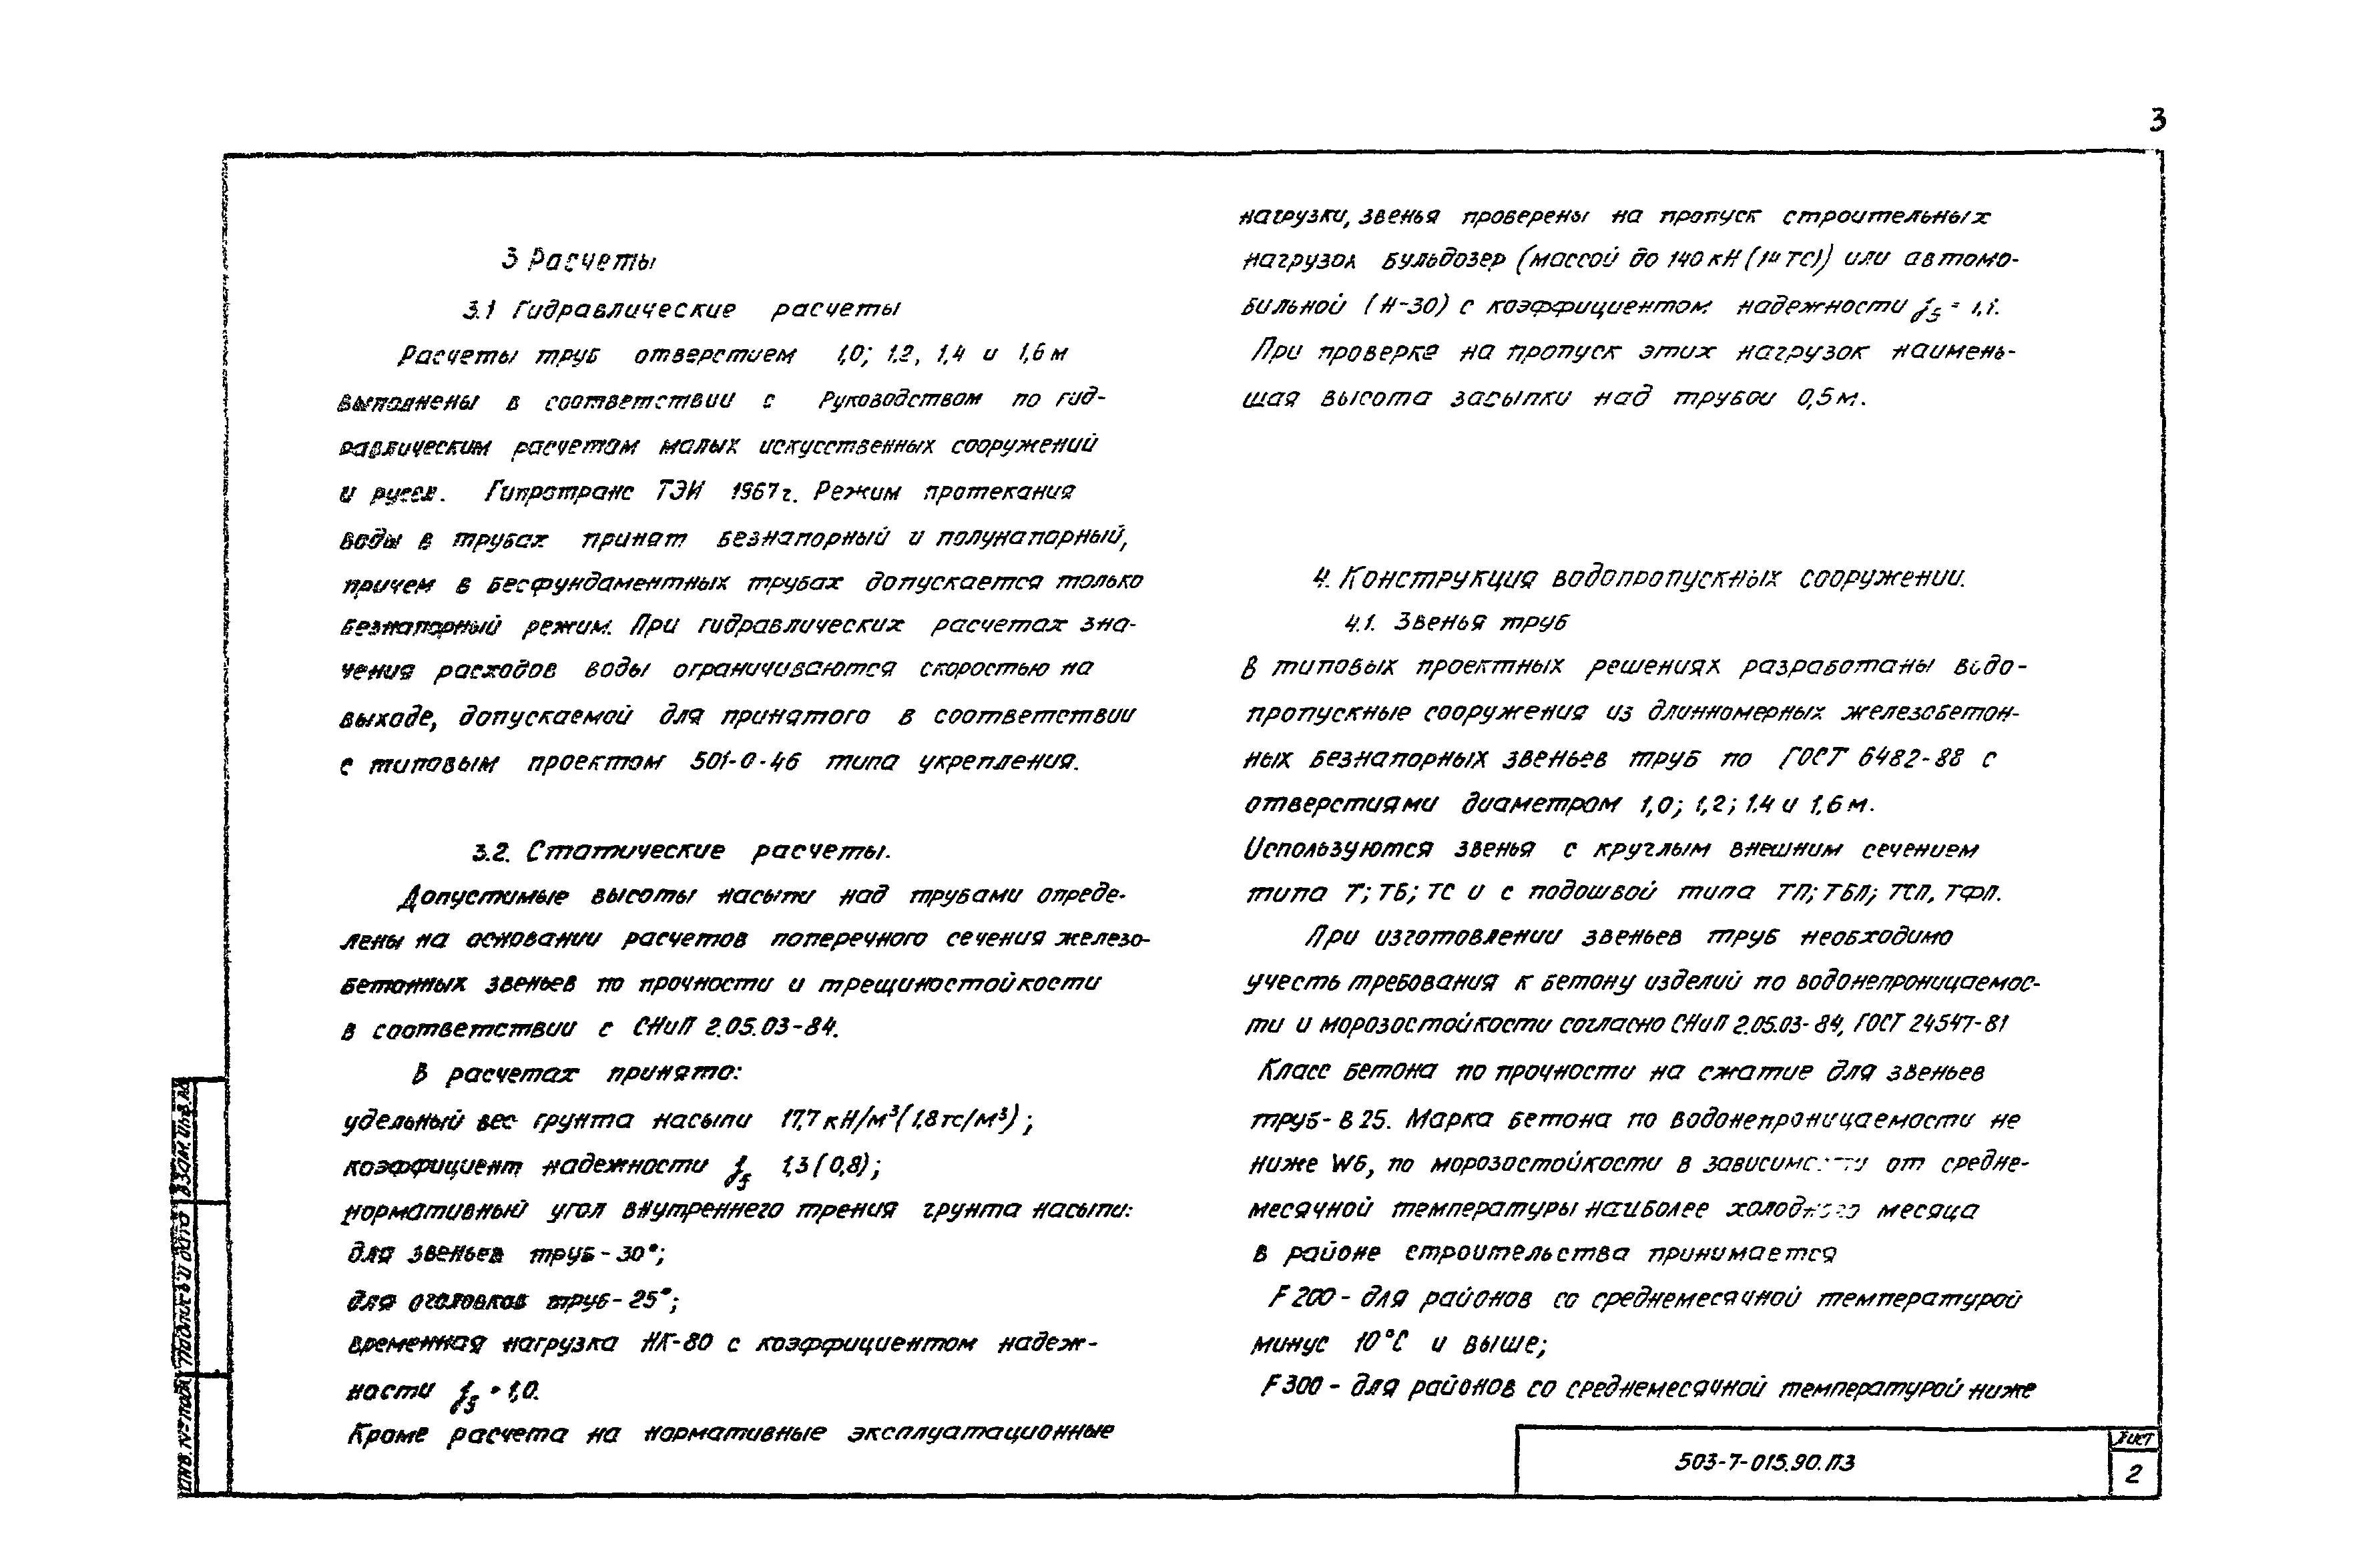 3
3 Расчеты
3.1 Гидравлические расчеты
Расчеты труб отверстием 1,0; 1.2, 1,4 и 1,6 м
выполнены в соответствии с Руководством по гид-
равлическим расчетам малых искусственных сооружений
и русел. Гипротранс ТЭИ 1967 г. Режим протекания
воды в трубах принят безнапорный и полунапорный,
причем в бесфундаментных трубах допускается только
безнапорный режим. При гидравлических расчетах зна-
чения расходов воды ограничиваются скоростью на
выходе, допускаемой для принятого в соответствии
с типовым проектом 501-0-46 типа укрепления.
3.2. Статические расчеты.
Допустимые высоты насыпи над трубами опреде-
лены на основании расчетов поперечного сечения железо-
бетонных звеньев по прочности и трещиностойкости
в соответствии с СНиП 2.05.03-84.
В расчетах принято:
удельный вес грунта насыпи 17,7 кН/м³ (1,8 тс/м³);
коэффициент надежности 1,3 (0,8);
нормативный угол внутреннего трения грунта насыпи:
для звеньев труб - 30°;
для оголовков труб - 25°;
временная нагрузка НК-80 с коэффициентом надеж-
ности = 1,0.
Кроме расчета на нормативные эксплуатационные
нагрузки, звенья проверены на пропуск строительных
нагрузок бульдозер (массой до 140 кН (14 ТС)) или автомо-
бильной (Н-30) с коэффициентом надежности = 1,1.
При проверке на пропуск этих нагрузок наимень-
шая высота засыпки над трубой 0,5 м.
4. Конструкция водопропускных сооружении.
4.1. Звенья труб
В типовых проектных решениях разработаны водо-
пропускные сооружения из длинномерных железобетон-
ных безнапорных звеньев труб по ГОСТ 6482-88 с
отверстиями диаметром 1,0; 1,2; 1.4 и 1,6 м.
Используются звенья с круглым внешним сечением
типа Т; ТБ; ТС и с подошвой типа ТП; ТБП; ТСП, ТФП.
При изготовлении звеньев труб необходимо
учесть требования к бетону изделий по водонепроницаемос-
ти и морозостойкости согласно СНиП 2.05.03-84, ГОСТ 24547-81
Класс бетона по прочности на сжатие для звеньев
труб - В 25. Марка бетона по водонепроницаемости не
ниже W6, по морозостойкости в зависимости от средне-
месячной температуры наиболее холодного месяца
в районе строительства принимается
F 200 - для районов со среднемесячной температурой
минус 10°С и выше;
F 300 - для районов со среднемесячной температурой ниже
503-7-015.90.ПЗ
Лист
2
Взам. инв. №
Подпись и дата
Инв. № подл